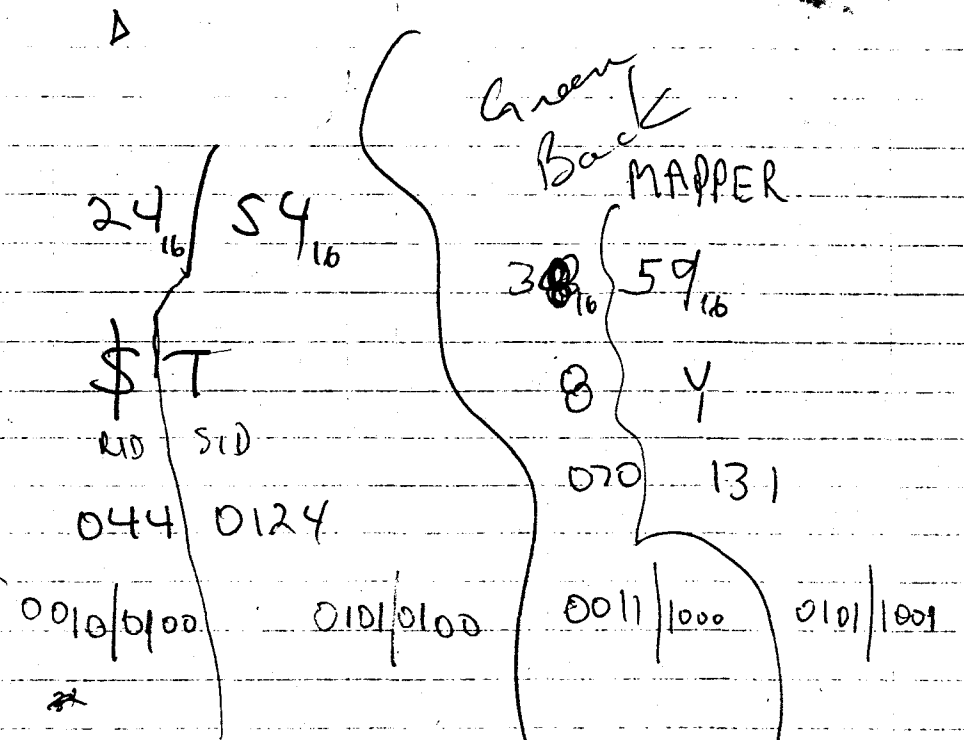 Green
Back
MAPPER
24₁₆ 54₁₆
3 ₁₆ 59₁₆
$ T
8 Y
RID SID
070 131
044 0124
0010|0100 0101|0100 0011|1000 0101|1001